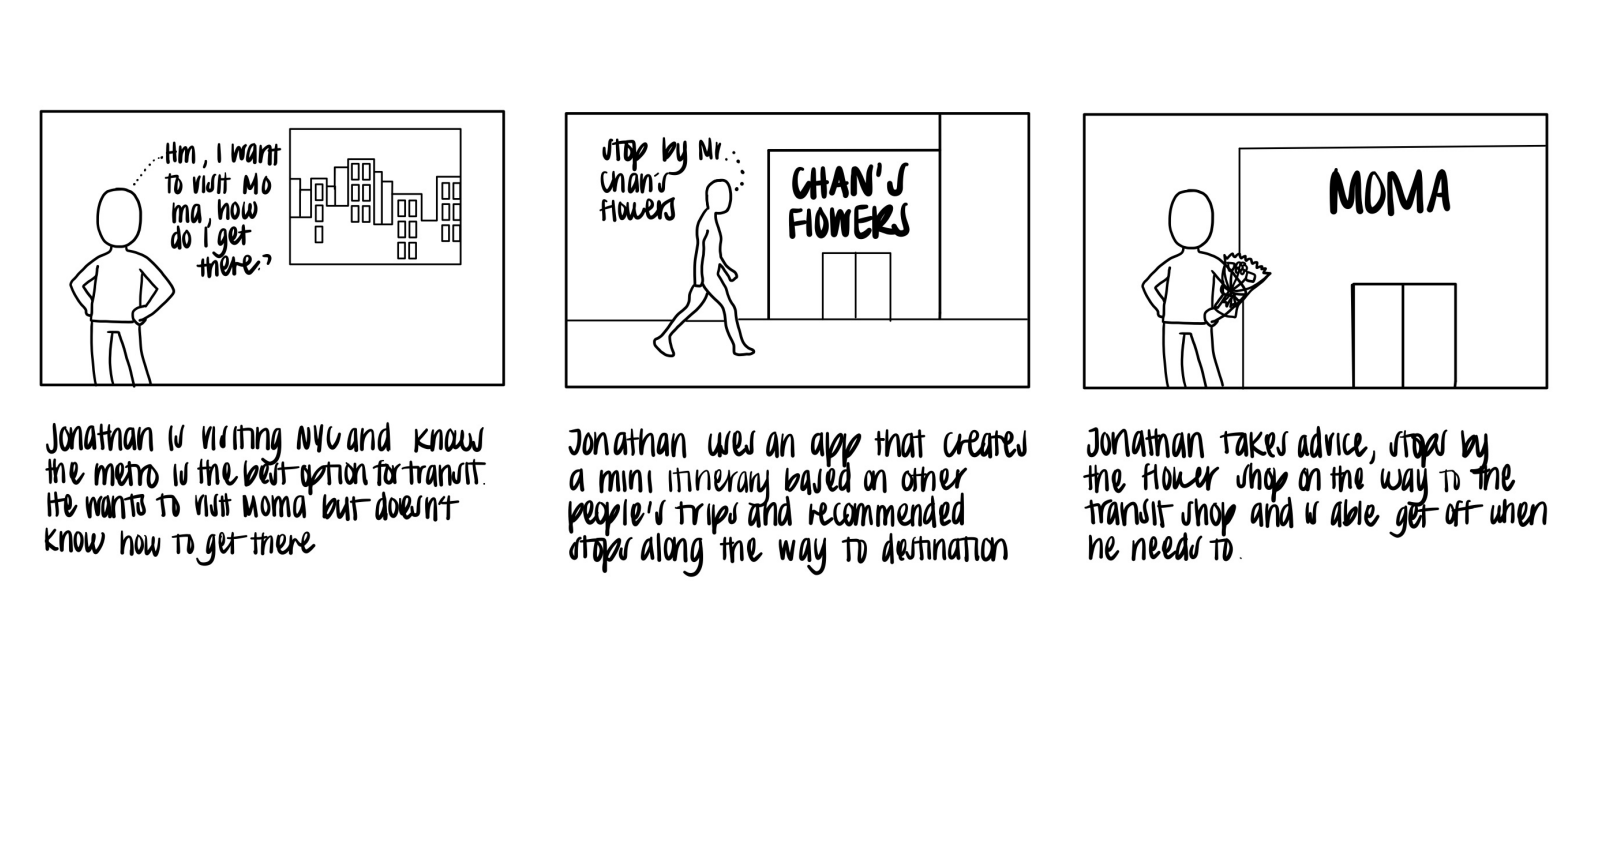 Hm, I want
to visit Mo
ma, how
do I get
there?
Jonathan is visiting NYC and knows
the metro is the best option for transit.
He wants to visit Moma but doesn't
know how to get there
Stop by Mr.
Chan's
flowers
CHAN'S
FLOWERS
Jonathan uses an app that creates
a mini itinerary based on other
people's trips and recommended
stops along the way to destination
MOMA
Jonathan takes advice, stops by
the flower shop on the way to the
transit shop and is able get off when
he needs to.